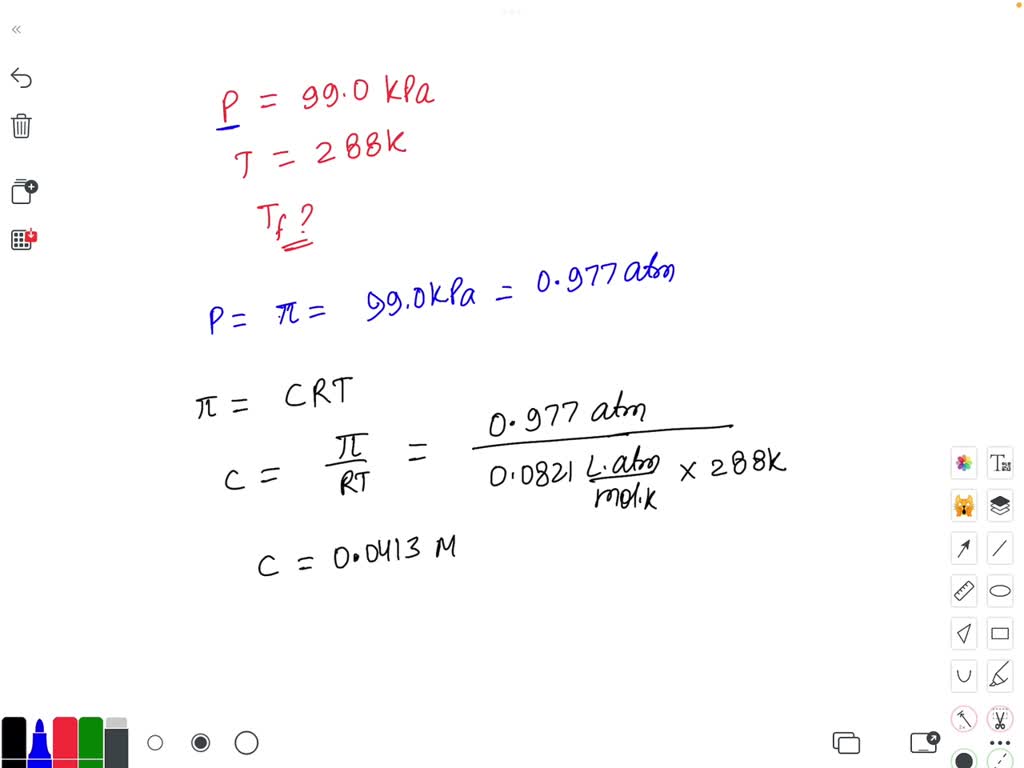 P = 99.0 kPa
T = 288K
Tf ?
P = π = 99.0kPa = 0.977 atm
π = CRT
C = π/RT = 0.977 atm / 0.0821 L.atm/mol.K × 288K
C = 0.0413 M